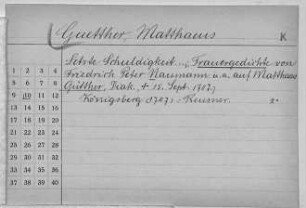 Guetther, Matthaeus K
Letzte Schuldigkeit ... Trauergedichte von
Friedrich Peter Naumann u.a. auf Matthaeus
Gütther, Diak. + 15. Sept. 1707.
Königsberg 1707: Reusner. 2°
1 2 3 4
5 6 7 8
9 10 11 12
13 14 15 16
17 18 19 20
21 22 23 24
25 26 27 28
29 30 31 32
33 34 35 36
37 38 39 40